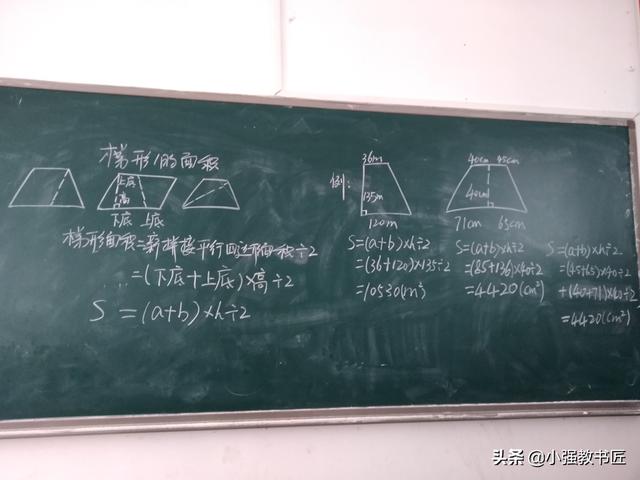 梯形的面积
上底
高
下底 上底
梯形面积=新拼接平行四边形面积÷2
=(下底+上底)×高÷2
S=(a+b)×h÷2
例:
36m
135m
120m
S=(a+b)×h÷2
=(36+120)×135÷2
=10530(m²)
40cm 45cm
40cm
71cm 65cm
S=(a+b)×h÷2
=(85+136)×40÷2
=4420(cm²)
S=(a+b)×h÷2
=(45+65)×40÷2
+(40+71)×40÷2
=4420(cm²)
头条 @小强教书匠